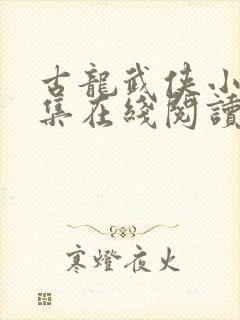 古龍武俠小
集在綫閱讀
寒燈夜火